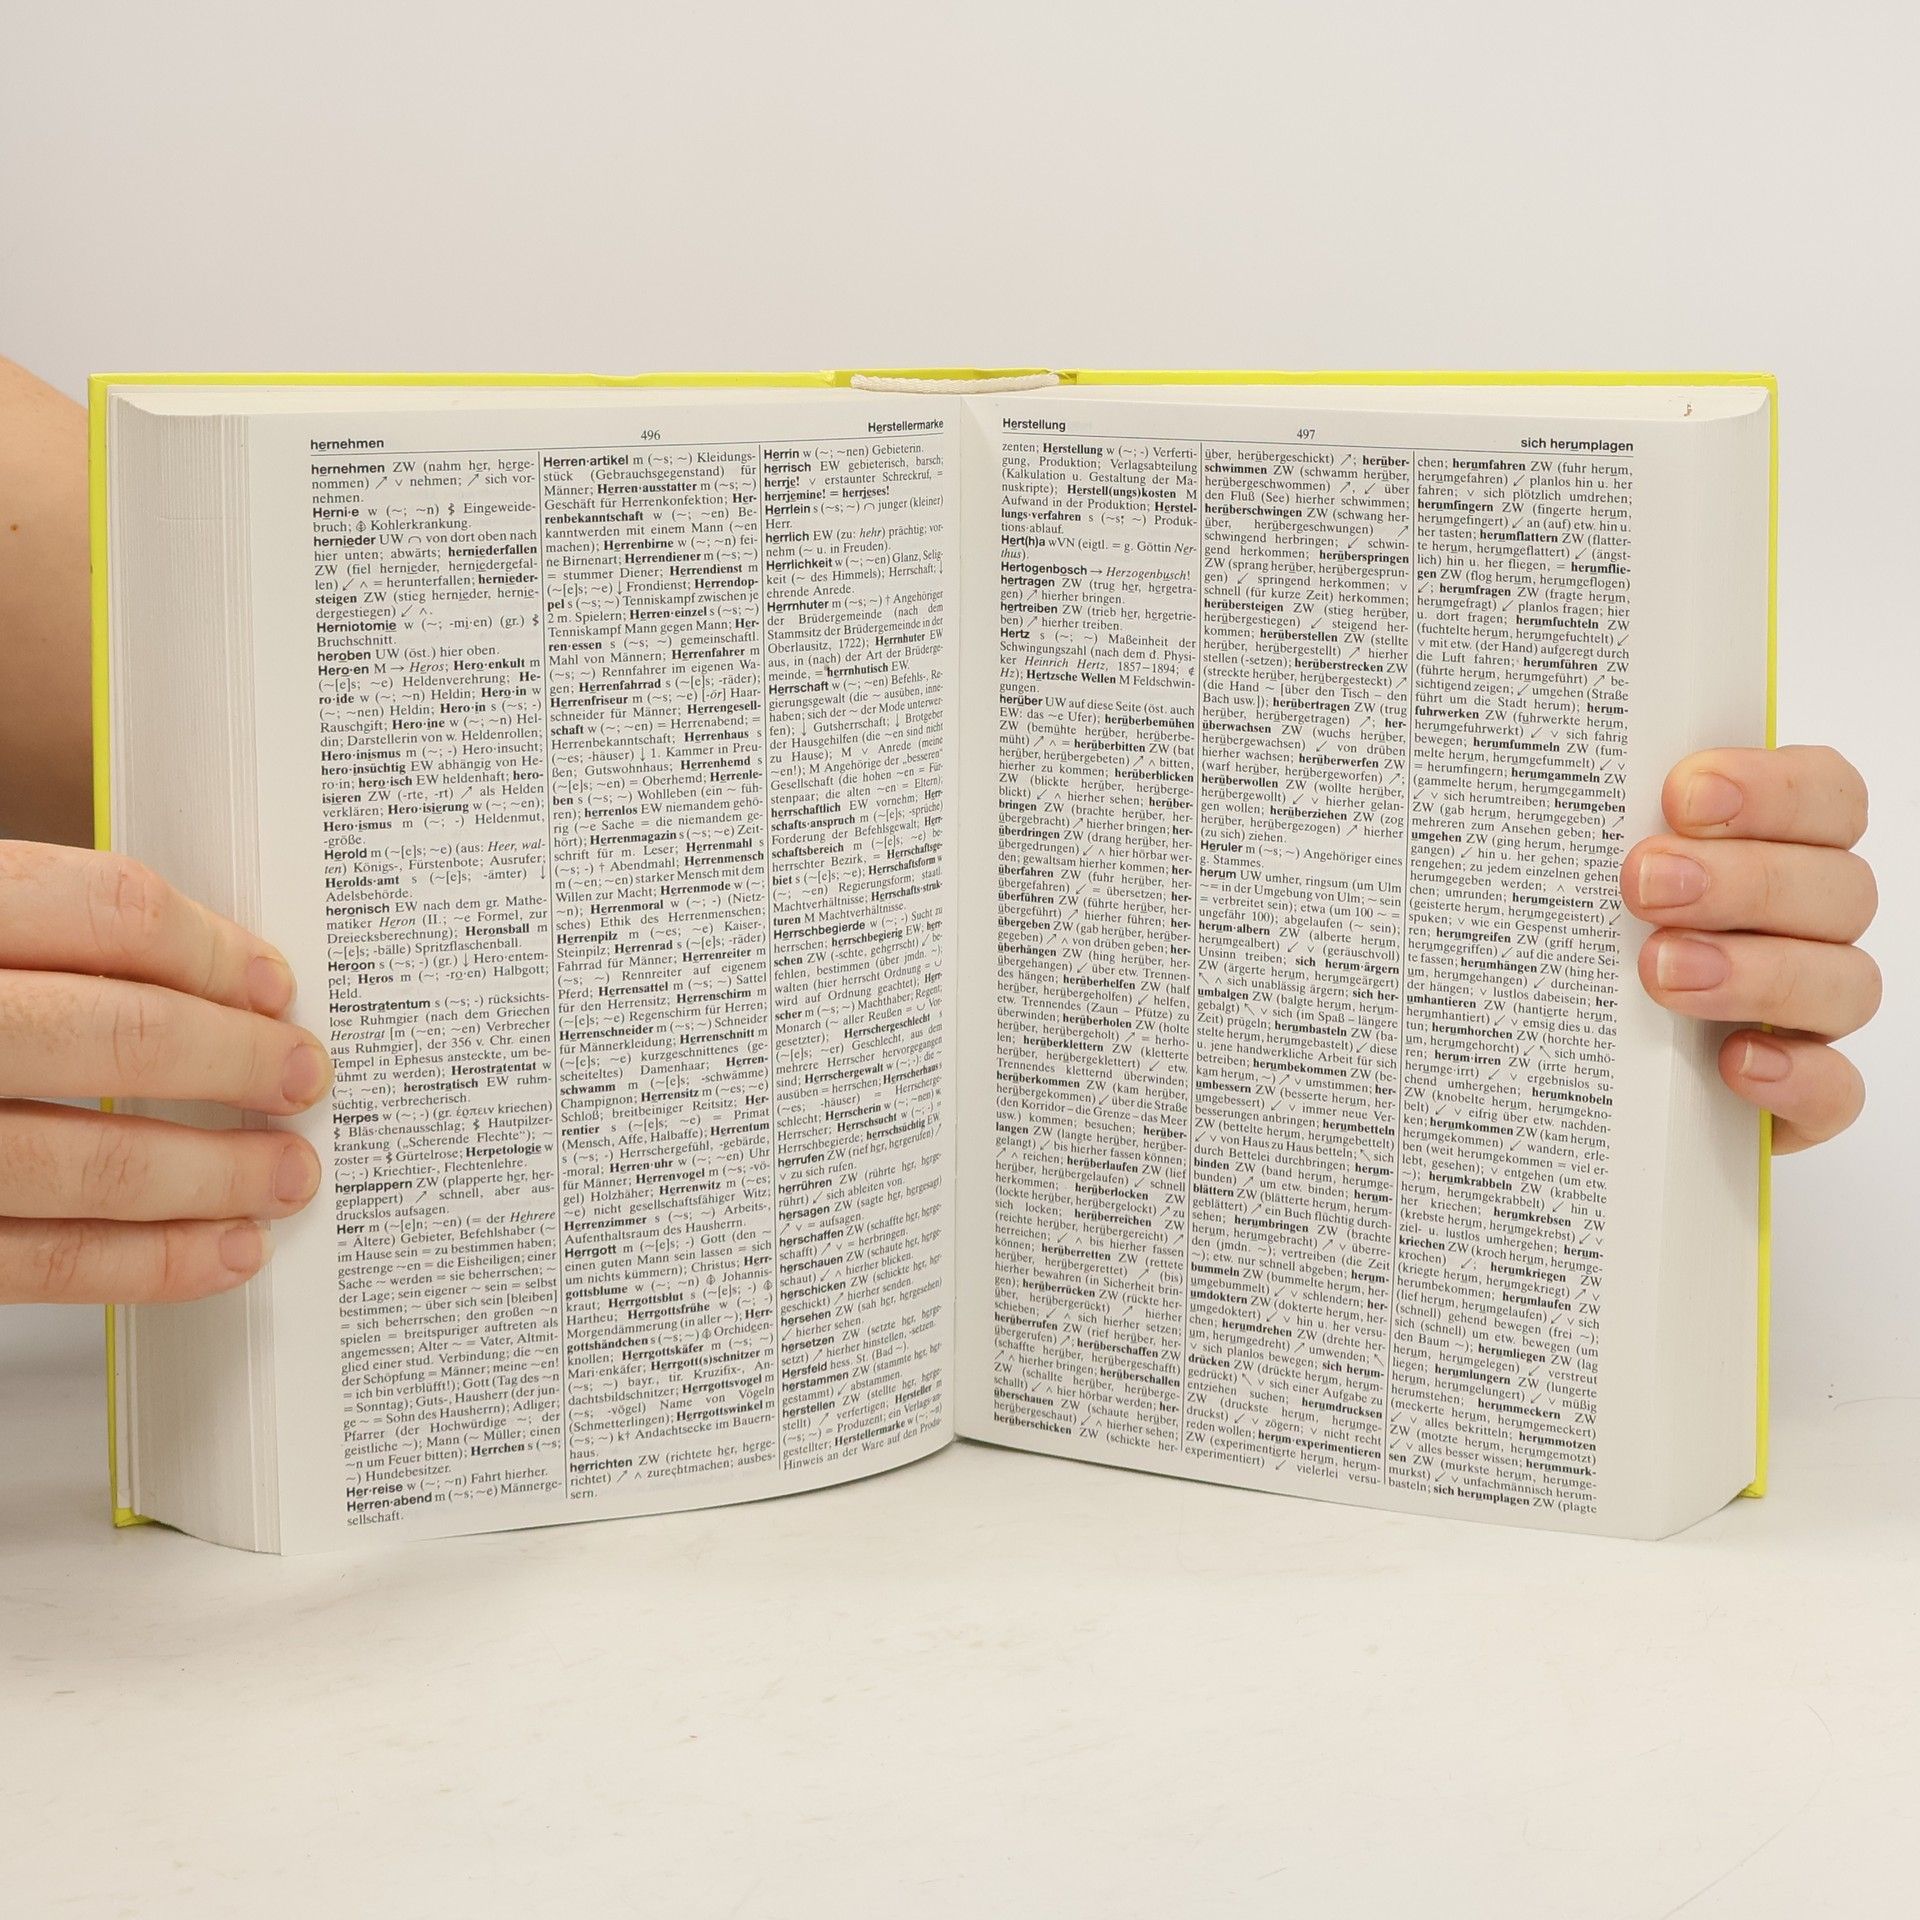 hernehmen
496
Herstellermarke
hernehmen ZW (nahm her, herge-
nommen) ↗ ∨ nehmen; ↗ sich vor-
nehmen.
Herni·e w (~; ~n) Eingeweide-
bruch; Kohlerkrankung.
hernieder UW von dort oben nach
hier unten; abwärts; herniederfallen
ZW (fiel hernieder, herniedergefal-
len) ↙ ∧ = herunterfallen; hernieder-
steigen ZW (stieg hernieder, hernie-
dergestiegen) ↙ ∧.
Herniotomie w (~; -mi·en) (gr.)
Bruchschnitt.
heroben UW (öst.) hier oben.
Hero·en M → Heros; Hero·enkult m
(~[e]s; ~e) Heldenverehrung; He-
ro·ide w (~; ~n) Heldin; Hero·in w
(~; ~nen) Heldin; Hero·in s (~s; -)
Rauschgift; Hero·ine w (~; ~n) Hel-
din; Darstellerin von w. Heldenrollen;
Hero·inismus m (~; -) Hero·insucht;
hero·insüchtig EW abhängig von He-
ro·in; hero·isch EW heldenhaft; hero-
isieren ZW (-rte, -rt) ↗ als Helden
verklären; Hero·isierung w (~; ~en);
Hero·ismus m (~; -) Heldenmut,
-größe.
Herold m (~[e]s; ~e) (aus: Heer, wal-
ten) Königs-, Fürstenbote; Ausrufer;
Herolds·amt s (~[e]s; -ämter) ↓
Adelsbehörde.
heronisch EW nach dem gr. Mathe-
matiker Heron (II.; ~e Formel, zur
Dreiecksberechnung); Heronsball m
(~[e]s; -bälle) Spritzflaschenball.
Heroon s (~s; -) (gr.) ↓ Hero·entem-
pel; Heros m (~; -ro·en) Halbgott;
Held.
Herostratentum s (~s; -) rücksichts-
lose Ruhmgier (nach dem Griechen
Herostrat [m (~en; ~en) Verbrecher
aus Ruhmgier], der 356 v. Chr. einen
Tempel in Ephesus ansteckte, um be-
rühmt zu werden); Herostratentat w
(~; ~en); herostratisch EW ruhm-
süchtig, verbrecherisch.
Herpes w (~; -) (gr. ἕρπειν kriechen)
Bläs·chenausschlag; Hautpilzer-
krankung („Scherende Flechte“); ~
zoster = Gürtelrose; Herpetologie w
(~; -) Kriechtier-, Flechtenlehre.
herplappern ZW (plapperte her, her-
geplappert) ↗ schnell, aber aus-
druckslos aufsagen.
Herr m (~[e]n; ~en) (= der Hehrere
= Ältere) Gebieter, Befehlshaber (~
im Hause sein = zu bestimmen haben;
gestrenge ~en = die Eisheiligen; einer
Sache ~ werden = sie beherrschen; ~
der Lage; sein eigener ~ sein = selbst
bestimmen; ~ über sich sein [bleiben]
= sich beherrschen; den großen ~n
spielen = breitspuriger auftreten als
angemessen; Alter ~ = Vater, Altmit-
glied einer stud. Verbindung; die ~en
der Schöpfung = Männer; meine ~en!
= ich bin verblüfft!); Gott (Tag des ~n
= Sonntag); Guts-, Hausherr (der jun-
ge ~ = Sohn des Hausherrn); Adliger;
Pfarrer (der Hochwürdige ~; der
geistliche ~); Mann (~ Müller; einen
~n um Feuer bitten); Herrchen s (~s;
~) Hundebesitzer.
Her·reise w (~; ~n) Fahrt hierher.
Herren·abend m (~s; ~e) Männerge-
sellschaft.
Herren·artikel m (~s; ~) Kleidungs-
stück (Gebrauchsgegenstand) für
Männer; Herren·ausstatter m (~s; ~)
Geschäft für Herrenkonfektion; Her-
renbekanntschaft w (~; ~en) Be-
kanntwerden mit einem Mann (~en
machen); Herrenbirne w (~; ~n) fei-
ne Birnenart; Herrendiener m (~s; ~)
= stummer Diener; Herrendienst m
(~[e]s; ~e) ↓ Frondienst; Herrendop-
pel s (~s; ~) Tenniskampf zwischen je
2 m. Spielern; Herren·einzel s (~s; ~)
Tenniskampf Mann gegen Mann; Her-
ren·essen s (~s; ~) gemeinschaftl.
Mahl von Männern; Herrenfahrer m
(~s; ~) Rennfahrer im eigenen Wa-
gen; Herrenfahrrad s (~[e]s; -räder);
Herrenfriseur m (~s; ~e) [-ör] Haar-
schneider für Männer; Herrengesell-
schaft w (~; ~en) = Herrenabend; =
Herrenbekanntschaft; Herrenhaus s
(~es; -häuser) ↓ 1. Kammer in Preu-
ßen; Gutswohnhaus; Herrenhemd s
(~[e]s; ~en) = Oberhemd; Herrenle-
ben s (~s; ~) Wohlleben (ein ~ füh-
ren); herrenlos EW niemandem gehö-
rig (~e Sache = die niemandem ge-
hört); Herrenmagazin s (~s; ~e) Zeit-
schrift für m. Leser; Herrenmahl s
(~s; -) † Abendmahl; Herrenmensch
m (~en; ~en) starker Mensch mit dem
Willen zur Macht; Herrenmode w (~;
~n); Herrenmoral w (~; -) (Nietz-
sches) Ethik des Herrenmenschen;
Herrenpilz m (~es; ~e) Kaiser-,
Steinpilz; Herrenrad s (~[e]s; -räder)
Fahrrad für Männer; Herrenreiter m
(~s; ~) Rennreiter auf eigenem
Pferd; Herrensattel m (~s; ~) Sattel
für den Herrensitz; Herrenschirm m
(~[e]s; ~e) Regenschirm für Herren;
Herrenschneider m (~s; ~) Schneider
für Männerkleidung; Herrenschnitt m
(~[e]s; ~e) kurzgeschnittenes (ge-
scheiteltes) Damenhaar; Herren-
schwamm m (~[e]s; -schwämme)
Champignon; Herrensitz m (~es; ~e)
Schloß; breitbeiniger Reitsitz; Her-
rentier s (~[e]s; ~e) = Primat
(Mensch, Affe, Halbaffe); Herrentum
s (~s; -) Herrschergefühl, -gebärde,
-moral; Herren·uhr w (~; ~en) Uhr
für Männer; Herrenvogel m (~s; -vö-
gel) Holzhäher; Herrenwitz m (~es;
~e) nicht gesellschaftsfähiger Witz;
Herrenzimmer s (~s; ~) Arbeits-,
Aufenthaltsraum des Hausherrn.
Herrgott m (~[e]s; -) Gott (den ~
einen guten Mann sein lassen = sich
um nichts kümmern); Christus; Herr-
gottsblume w (~; ~n) Johannis-
kraut; Herrgottsblut s (~[e]s; -)
Hartheu; Herrgottsfrühe w (~; -)
Morgendämmerung (in aller ~); Herr-
gottshändchen s (~s; ~) Orchideen-
knollen; Herrgottskäfer m (~s; ~)
Mari·enkäfer; Herrgott(s)schnitzer m
(~s; ~) bayr., tir. Kruzifix-, An-
dachtsbildschnitzer; Herrgottsvogel m
(~s; -vögel) Name von Vögeln
(Schmetterlingen); Herrgottswinkel m
(~s; ~) k† Andachtsecke im Bauern-
haus.
herrichten ZW (richtete her, herge-
richtet) ↗ ∧ zurechtmachen; ausbes-
sern.
Herrin w (~; ~nen) Gebieterin.
herrisch EW gebieterisch, barsch;
herrje! ∨ erstaunter Schreckruf, =
herrjemine! = herrjeses!
Herrlein s (~s; ~) junger (kleiner)
Herr.
herrlich EW (zu: hehr) prächtig; vor-
nehm (~ u. in Freuden).
Herrlichkeit w (~; ~en) Glanz, Selig-
keit (~ des Himmels); Herrschaft; ↓
ehrende Anrede.
Herrnhuter m (~s; ~) † Angehöriger
der Brüdergemeinde (nach dem
Stammsitz der Brüdergemeinde in der
Oberlausitz, 1722); Herrnhuter EW
aus, in (nach) der Art der Brüderge-
meinde, = herrnhutisch EW.
Herrschaft w (~; ~en) Befehls-, Re-
gierungsgewalt (~ ausüben, inne-
haben; sich der ~ der Mode unterwer-
fen); ↓ Gutsherrschaft; ↓ Brotgeber
der Hausgehilfen (die ~en sind nicht
zu Hause); M ∨ Anrede (meine
~en!); M Angehörige der „besseren“
Gesellschaft (die hohen ~en = Für-
stenpaar; die alten ~en = Eltern);
herrschaftlich EW vornehm; Herr-
schafts·anspruch m (~[e]s; -sprüche)
Forderung der Befehlsgewalt; Herr-
schaftsbereich m (~[e]s; ~e) be-
herrschter Bezirk, = Herrschaftsge-
biet s (~[e]s; ~e); Herrschaftsform w
(~; ~en) Regierungsform; staatl.
Machtverhältnisse; Herrschafts·struk-
turen M Machtverhältnisse.
Herrschbegierde w (~; -) Sucht zu
herrschen; herrschbegierig EW; herr-
schen ZW (-schte, geherrscht) ↙ be-
fehlen, bestimmen (über jmdn. ~);
walten (hier herrscht Ordnung =
wird auf Ordnung geachtet); Herr-
scher m (~s; ~) Machthaber; Regent;
Monarch (~ aller Reußen = Vor-
gesetzter); Herrschergeschlecht s
(~[e]s; ~er) Geschlecht, aus dem
mehrere Herrscher hervorgegangen
sind; Herrschergewalt w (~; -); die ~
ausüben = herrschen; Herrscherhaus s
(~es; -häuser) = Herrscherge-
schlecht; Herrscherin w (~; ~nen) w.
Herrscher; Herrschsucht w (~; -) =
Herrschbegierde; herrschsüchtig EW.
herrufen ZW (rief her, hergerufen) ↗
∨ zu sich rufen.
herrühren ZW (rührte her, herge-
rührt) ↙ sich ableiten von.
hersagen ZW (sagte her, hergesagt)
↗ ∨ = aufsagen.
herschaffen ZW (schaffte her, herge-
schafft) ↗ ∨ = herbringen.
herschauen ZW (schaute her, herge-
schaut) ↙ ∧ hierher blicken.
herschicken ZW (schickte her, her-
geschickt) ↗ hierher senden.
hersehen ZW (sah her, hergesehen)
↙ hierher sehen.
hersetzen ZW (setzte her, herge-
setzt) ↗ hierher hinstellen, -setzen.
Hersfeld hess. St. (Bad ~).
herstammen ZW (stammte her, her-
gestammt) ↙ abstammen.
herstellen ZW (stellte her, herge-
stellt) ↗ verfertigen; Hersteller m
(~s; ~) = Produzent; ein Verlags·an-
gestellter; Herstellermarke w (~; ~n)
Hinweis an der Ware auf den Produ-
Herstellung
497
sich herumplagen
zenten; Herstellung w (~; -) Verferti-
gung, Produktion; Verlagsabteilung
(Kalkulation u. Gestaltung der Ma-
nuskripte); Herstell(ungs)kosten M
Aufwand in der Produktion; Herstel-
lungs·verfahren s (~s; ~) Produk-
tions·ablauf.
Hert(h)a wVN (eigtl. = g. Göttin Ner-
thus).
Hertogenbosch → Herzogenbusch!
hertragen ZW (trug her, hergetra-
gen) ↗ hierher bringen.
hertreiben ZW (trieb her, hergetrie-
ben) ↗ hierher treiben.
Hertz s (~; ~) Maßeinheit der
Schwingungszahl (nach dem d. Physi-
ker Heinrich Hertz, 1857–1894; ¢
Hz); Hertzsche Wellen M Feldschwin-
gungen.
herüber UW auf diese Seite (öst. auch
EW: das ~e Ufer); herüberbemühen
ZW (bemühte herüber, herüberbe-
müht) ↗ ∧ = herüberbitten ZW (bat
herüber, herübergebeten) ↗ ∧ bitten,
hierher zu kommen; herüberblicken
ZW (blickte herüber, herüberge-
blickt) ↙ ∧ hierher sehen; herüber-
bringen ZW (brachte herüber, her-
übergebracht) ↗ hierher bringen; her-
überdringen ZW (drang herüber, her-
übergedrungen) ↙ ∧ hier hörbar wer-
den; gewaltsam hierher kommen; her-
überfahren ZW (fuhr herüber, her-
übergefahren) ↙ = übersetzen; her-
überführen ZW (führte herüber, her-
übergeführt) ↗ hierher führen; her-
übergeben ZW (gab herüber, herüber-
gegeben) ↗ ∧ von drüben geben; her-
überhängen ZW (hing herüber, her-
übergehangen) ↙ über etw. Trennen-
des hängen; herüberhelfen ZW (half
herüber, herübergeholfen) ↙ helfen,
etw. Trennendes (Zaun – Pfütze) zu
überwinden; herüberholen ZW (holte
herüber, herübergeholt) ↗ = herho-
len; herüberklettern ZW (kletterte
herüber, herübergeklettert) ↙ etw.
Trennendes kletternd überwinden;
herüberkommen ZW (kam herüber,
herübergekommen) ↙ über die Straße
(den Korridor – die Grenze – das Meer
usw.) kommen; besuchen; herüber-
langen ZW (langte herüber, herüber-
gelangt) ↙ bis hierher fassen können;
↗ ∧ reichen; herüberlaufen ZW (lief
herüber, herübergelaufen) ↙ schnell
herkommen; herüberlocken ZW
(lockte herüber, herübergelockt) ↗ zu
sich locken; herüberreichen ZW
(reichte herüber, herübergereicht) ↗
herreichen; ↙ ∧ bis hierher fassen
können; herüberretten ZW (rettete
herüber, herübergerettet) ↗ (bis)
hierher bewahren (in Sicherheit brin-
gen); herüberrücken ZW (rückte her-
über, herübergerückt) ↗ hierher
schieben; ↙ ∧ sich hierher setzen;
herüberrufen ZW (rief herüber, her-
übergerufen) ↗; herüberschaffen ZW
(schaffte herüber, herübergeschafft)
↗ ∧ hierher bringen; herüberschallen
ZW (schallte herüber, herüberge-
schallt) ↙ ∧ hier hörbar werden; her-
überschauen ZW (schaute herüber,
herübergeschaut) ↙ ∧ hierher sehen;
herüberschicken ZW (schickte her-
über, herübergeschickt) ↗; herüber-
schwimmen ZW (schwamm herüber,
herübergeschwommen) ↗, ↙ über
den Fluß (See) hierher schwimmen;
herüberschwingen ZW (schwang her-
über, herübergeschwungen) ↗
schwingend herbringen; ↙ schwin-
gend herkommen; herüberspringen
ZW (sprang herüber, herübergesprun-
gen) ↙ springend herkommen; ∨
schnell (für kurze Zeit) herkommen;
herübersteigen ZW (stieg herüber,
herübergestiegen) ↙ steigend her-
kommen; herüberstellen ZW (stellte
herüber, herübergestellt) ↗ hierher
stellen (-setzen); herüberstrecken ZW
(streckte herüber, herübergesteckt) ↗
(die Hand ~ [über den Tisch – den
Bach usw.]); herübertragen ZW (trug
herüber, herübergetragen) ↗; her-
überwachsen ZW (wuchs herüber,
herübergewachsen) ↙ von drüben
hierher wachsen; herüberwerfen ZW
(warf herüber, herübergeworfen) ↗;
herüberwollen ZW (wollte herüber,
herübergewollt) ↙ ∨ hierher gelan-
gen wollen; herüberziehen ZW (zog
herüber, herübergezogen) ↗ hierher
(zu sich) ziehen.
Heruler m (~s; ~) Angehöriger eines
g. Stammes.
herum UW umher, ringsum (um Ulm
~= in der Umgebung von Ulm; ~ sein
= verbreitet sein); etwa (um 100 ~ =
ungefähr 100); abgelaufen (~ sein);
herum·albern ZW (alberte herum,
herumgealbert) ↙ ∨ (geräuschvoll)
Unsinn treiben; sich herum·ärgern
ZW (ärgerte herum, herumgeärgert)
↖ ∧ sich unablässig ärgern; sich her-
umbalgen ZW (balgte herum, herum-
gebalgt) ↖ ∨ sich (im Spaß – längere
Zeit) prügeln; herumbasteln ZW (ba-
stelte herum, herumgebastelt) ↙ diese
u. jene handwerkliche Arbeit für sich
betreiben; herumbekommen ZW (be-
kam herum, ~) ↗ ∨ umstimmen; her-
umbessern ZW (besserte herum, her-
umgebessert) ↙ ∨ immer neue Ver-
besserungen anbringen; herumbetteln
ZW (bettelte herum, herumgebettelt)
↙ ∨ von Haus zu Haus betteln; ↖ sich
durch Bettelei durchbringen; herum-
binden ZW (band herum, herumge-
bunden) ↗ um etw. binden; herum-
blättern ZW (blätterte herum, herum-
geblättert) ↗ ein Buch flüchtig durch-
sehen; herumbringen ZW (brachte
herum, herumgebracht) ↗ ∨ überre-
den (jmdn. ~); vertreiben (die Zeit
~); etw. nur schnell abgeben; herum-
bummeln ZW (bummelte herum, her-
umgebummelt) ↙ ∨ schlendern; her-
umdoktern ZW (dokterte herum, her-
umgedoktert) ↙ ∨ hin u. her versu-
chen; herumdrehen ZW (drehte her-
um, herumgedreht) ↗ umwenden; ↖
∨ sich planlos bewegen; sich herum-
drücken ZW (drückte herum, herum-
gedrückt) ↖ ∨ sich einer Aufgabe zu
entziehen suchen; herumdrucksen
ZW (druckste herum, herumge-
druckst) ↙ ∨ zögern; ∨ nicht recht
reden wollen; herum·experimentieren
ZW (experimentierte herum, herum-
experimentiert) ↙ vielerlei versu-
chen; herumfahren ZW (fuhr herum,
herumgefahren) ↙ planlos hin u. her
fahren; ∨ sich plötzlich umdrehen;
herumfingern ZW (fingerte herum,
herumgefingert) ↙ an (auf) etw. hin u.
her tasten; herumflattern ZW (flatter-
te herum, herumgeflattert) ↙ (ängst-
lich) hin u. her fliegen, = herumflie-
gen ZW (flog herum, herumgeflogen)
↙; herumfragen ZW (fragte herum,
herumgefragt) ↙ planlos fragen; hier
u. dort fragen; herumfuchteln ZW
(fuchtelte herum, herumgefuchtelt) ↙
∨ mit etw. (der Hand) aufgeregt durch
die Luft fahren; herumführen ZW
(führte herum, herumgeführt) ↗ be-
sichtigend zeigen; ↙ umgehen (Straße
führt um die Stadt herum); herum-
fuhrwerken ZW (fuhrwerkte herum,
herumgefuhrwerkt) ↙ ∨ sich fahrig
bewegen; herumfummeln ZW (fum-
melte herum, herumgefummelt) ↙ ∨
= herumfingern; herumgammeln ZW
(gammelte herum, herumgegammelt)
↙ ∨ sich herumtreiben; herumgeben
ZW (gab herum, herumgegeben) ↗
mehreren zum Ansehen geben; her-
umgehen ZW (ging herum, herumge-
gangen) ↙ hin u. her gehen; spazie-
rengehen; zu jedem einzelnen gehen;
herumgegeben werden; ∧ verstrei-
chen; umrunden; herumgeistern ZW
(geisterte herum, herumgegeistert) ↙
spuken; ∨ wie ein Gespenst umherir-
ren; herumgreifen ZW (griff herum,
herumgegriffen) ↙ auf die andere Sei-
te fassen; herumhängen ZW (hing her-
um, herumgehangen) ↙ durcheinan-
der hängen; ∨ lustlos dabeisein; her-
umhantieren ZW (hantierte herum,
herumhantiert) ↙ ∨ emsig dies u. das
tun; herumhorchen ZW (horchte her-
um, herumgehorcht) ↙ ↖ sich umhö-
ren; herum·irren ZW (irrte herum,
herumge·irrt) ↙ ∨ ergebnislos su-
chend umhergehen; herumknobeln
ZW (knobelte herum, herumgekno-
belt) ↙ ∨ eifrig über etw. nachden-
ken; herumkommen ZW (kam herum,
herumgekommen) ↙ wandern, erle-
ben (weit herumgekommen = viel er-
lebt, gesehen); ∨ entgehen (um etw.
~); herumkrabbeln ZW (krabbelte
herum, herumgekrabbelt) ↙ hin u.
her kriechen; herumkrebsen ZW
(krebste herum, herumgekrebst) ↙ ∨
ziel- u. lustlos umhergehen; herum-
kriechen ZW (kroch herum, herumge-
krochen) ↙; herumkriegen ZW
(kriegte herum, herumgekriegt) ↗ ∨
herumbekommen; herumlaufen ZW
(lief herum, herumgelaufen) ↙ ∨
(schnell) gehend bewegen (frei ~);
sich (schnell) um etw. bewegen (um
den Baum ~); herumliegen ZW (lag
herum, herumgelegen) ↙ verstreut
liegen; herumlungern ZW (lungerte
herum, herumgelungert) ↙ ∨ müßig
herumstehen; herummeckern ZW
(meckerte herum, herumgemeckert)
↙ ∨ alles bekritteln; herummotzen
ZW (motzte herum, herumgemotzt)
↙ ∨ alles besser wissen; herummurk-
sen ZW (murkste herum, herumge-
murkst) ↙ ∨ unfachmännisch herum-
basteln; sich herumplagen ZW (plagte